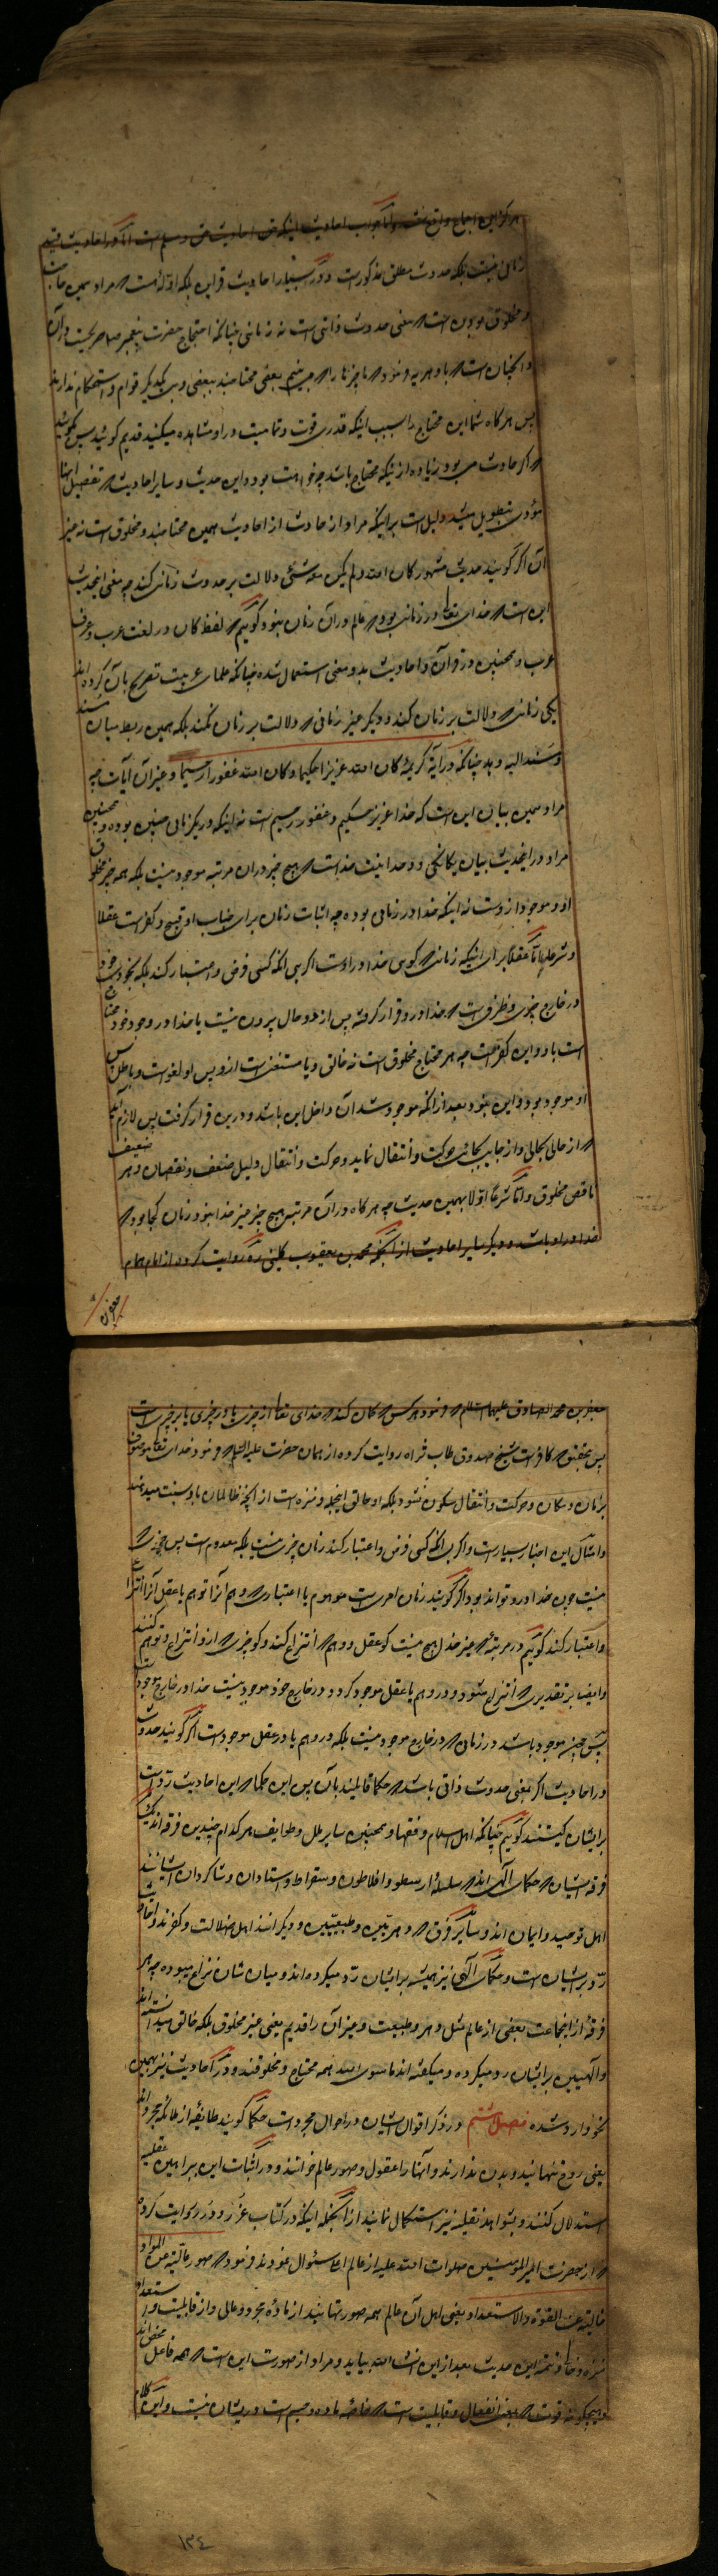 هرگز این اجماع واقع نشده و اما جواب احادیث اینکه در احادیث حدوث مسلم است اما در احادیث قید
زمانی نیست بلکه حدوث مطلق مذکور است و در بسیار احادیث قراین بلکه ادله هست که مراد همین حاجت
و مخلوق بودن است که معنی حدوث ذاتی است نه زمانی چنانکه احتجاج حضرت پیغمبر صاحب در آن
و آنچنان است که با دهریه فرمود که ما چیزها را که می بینیم بعضی محتاجند ببعضی و بی یکدیگر قوام و استحکام ندارند
پس هرگاه شما این محتاج را بسبب اینکه قدری قوت و تمامیت در او مشاهده میکنید قدیم گوئید پس بگوئید
که اگر حادث می بود زیاده از اینکه محتاج باشد چه خواهد بود و این حدیث و سایر احادیث که تفصیل آنها
مؤدی بتطویل میشد دلیل است بر اینکه مراد از حادث از احادیث همین محتاجند و مخلوق است نه غیر
آن اگر گویند حدیث مشهور کان الله و لم یکن معه شئ دلالت بر حدوث زمانی کند چه معنی این حدیث
این است که خدای تعالی در زمانی بود که عالم در آن زمان نبود گوئیم که لفظ کان در لغت عرب و عرف
عرب و همچنین در قرآن و احادیث بدو معنی استعمال شده چنانکه علمای عربیت تصریح بآن کرده اند
یکی زمانی که دلالت بر زمان کند و دیگر غیر زمانی که دلالت بر زمان نکند بلکه همین ربط میان مسند
و مسند الیه دهد چنانکه در آیة کریمه کان الله عزیزا حکیما و کان الله غفورا رحیما و غیر آن آیات چه
مراد همین بیان این است که خدا عزیز حکیم و غفور رحیم است نه اینکه در یک زمانی چنین بوده و همچنین
مراد در این حدیث بیان یگانگی و وحدانیت خداست که هیچ چیز در آن مرتبه موجود نیست بلکه همه چیز مخلوق
او و موجود از اوست نه اینکه خدا در زمانی بوده چه اثبات زمان برای جناب او قبیح و کفر است عقلا
و شرعا اما عقلا برای اینکه زمانی که گوئی خدا در اوست اگر بی آنکه کسی فرض و اعتبار کند بلکه بخودی خود
در خارج چیزی و ظرفی است که خدا در او قرار گرفته پس از دو حال بیرون نیست یا خدا در وجود خود محتاج
است باو و این کفر است چه هر محتاج مخلوق است نه خالق و یا مستغنی است از او پس او لغو است و باطل پس
او موجود بود و این نبود بعد از آنکه موجود شد آن داخل این باشد و درین قرار گرفت پس لازم آید
که از حالی بحالی و از جایی بجائی حرکت و انتقال نماید و حرکت و انتقال دلیل ضعف و نقصان و هر ضعیف
ناقص مخلوق و اما شرعا اولا بهمین حدیث چه هرگاه در آن مرتبه هیچ چیز غیر خدا نبود زمان کجا بود که
خدا در او باشد و دیگر سایر احادیث از آنجمله محمد بن یعقوب کلینی ره روایت کرده از امام همام
جعفر بن
جعفر بن محمد الصادق علیهما السلام که فرمود هر کس که گمان کند که خدای تعالی از چیزی یا در چیزی یا بر چیزی است
پس بتحقیق که کافر است شیخ صدوق طاب ثراه روایت کرده از همان حضرت علیه السلام که فرمود خدای تعالی موصوف
بزمان و مکان و حرکت و انتقال سکون نشود بلکه او خالق اینجمله و منزه است از آنچه ظالمان باو نسبت میدهند
و امثال این اخبار بسیار است و اگر بی آنکه کسی فرض و اعتبار کند زمان چیزی نیست بلکه معدوم است پس چیزی که
نیست چون خدا در او تواند بود اگر گویند زمان امری است موهوم یا اعتباری که وهم آنرا توهم یا عقل آنرا انتزاع
و اعتبار کند گوئیم در مرتبه که غیر خدا هیچ نیست کو عقل و وهم که انتزاع کند و کو چیزی که ازو انتزاع و توهم کنند
و ایضا بر تقدیری که انتزاع شود و در وهم یا عقل موجود گردد و در خارج خود موجود نیست خدا در خارج موجود است
پس چیزی موجود باشد در زمانی که در خارج موجود نیست بلکه در وهم یا در عقل موجود است اگر گویند حدوث
در احادیث اگر بمعنی حدوث ذاتی باشد که حکما قائلند بآن پس این همه این احادیث رد است
بر ایشان کیستند گوئیم چنانکه اهل اسلام و فقها و همچنین سایر ملل و طوایف هر کدام چندین فرقه اند یک
فرقه ایشان که حکمای الهی اند که سلسله ارسطو و افلاطون و سقراط و استادان و شاگردان ایشانند
اهل توحید و ایمان اند و سایر فرق که دهریین و طبیعیین و دیگرانند اهل ضلالت و کفرند و احادیث
رد بر ایشان است و حکمای الهی نیز همیشه بر ایشان رد میکرده اند و میان شان نزاع میبوده چه هر
فرقه از آنجماعت بعضی از عالم مثل دهر و طبیعت و غیر آن را قدیم یعنی غیر مخلوق بلکه خالق میدانسته اند
و الهیین بر ایشان رد میکرده و میگفته اند ماسوی الله همه محتاج و مخلوقند و در احادیث نیز بهمین
نحو وارد شده فصل ششم در ذکر اقوال ایشان در احوال مجردات حکما گویند طایفه از ملائکه مجرد اند
یعنی روح تنهایند و بدن ندارند و آنها را عقول و صور عالم خوانند و در اثبات این ببراهین عقلیه
استدلال کنند و بشواهد نقلیه نیز استکمال نمایند از آنجمله اینکه در کتاب غرر و درر روایت کرده
که از حضرت امیر المؤمنین صلوات الله علیه از عالم اعلی سئوال نمودند فرمود که صور عالیة عن المواد
خالیة عن القوة و الاستعداد یعنی اهل آن عالم همه صورتهایند از ماده مجرد و عالی و از قابلیت و استعداد
منزه و خالی و تتمه این حدیث بعد ازین انشاء الله بیاید و مراد از صورت این است که همه فاعل محض اند
و هیچگونه قوت که یعنی انفعال و قابلیت است که خاصه ماده و جسم است در ایشان نیست و این کلام
١٣٤